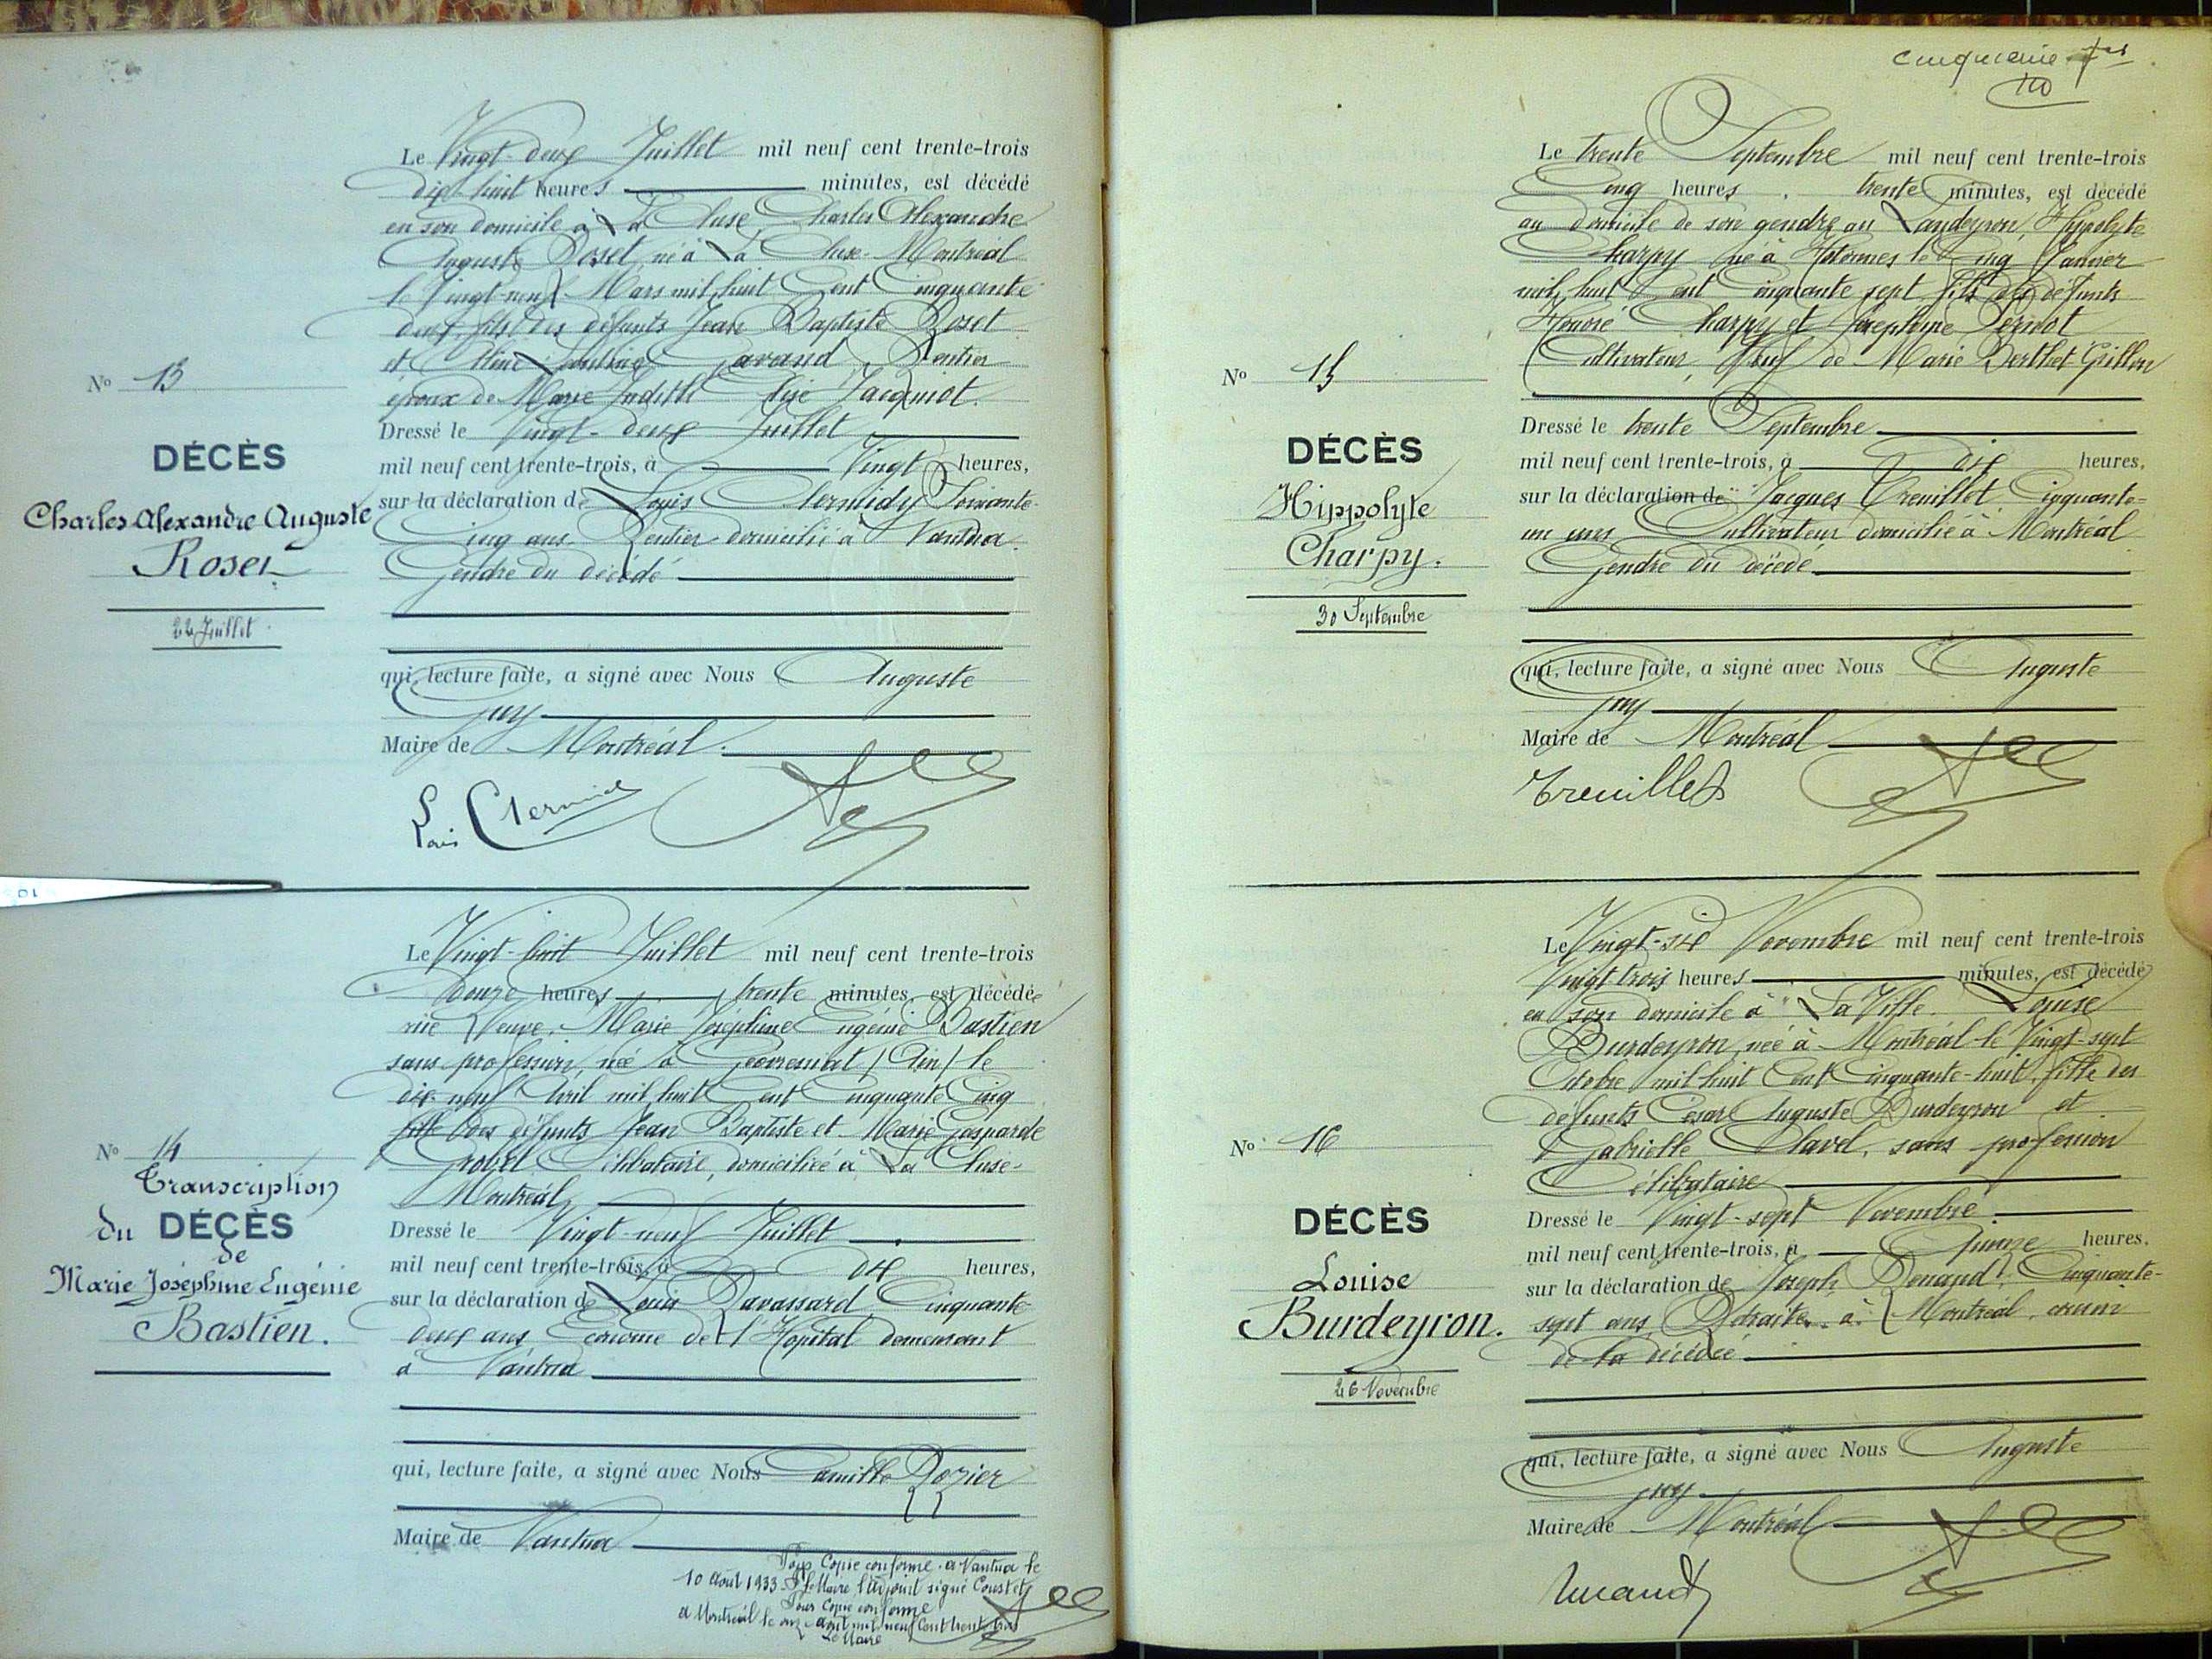 N° 13
DÉCÈS
Charles Alexandre Auguste
Roset
22 Juillet
Le Vingt-deux Juillet mil neuf cent trente-trois
dix huit heures minutes, est décédé
en son domicile à La Cluse, Charles Alexandre
Auguste Roset, né à La Cluse-Montréal
le Vingt-neuf Mars mil huit Cent Cinquante
deux, fils des défunts Jean Baptiste Roset
et Gavand, Rentier
époux de Marie Judith Jacquiot.
Dressé le Vingt-deux Juillet
mil neuf cent trente-trois, à Vingt heures,
sur la déclaration de Louis Clermidy Soixante-
Cinq ans Rentier domicilié à Nantua.
Gendre du décédé
qui, lecture faite, a signé avec Nous Auguste
Guy
Maire de Montréal.
Louis Clermidy
N° 14
Transcription
du DÉCÈS
de
Marie Joséphine Eugénie
Bastien.
Le Vingt-huit Juillet mil neuf cent trente-trois
douze heures trente minutes, est décédée
rue Marie Joséphine Eugénie Bastien
sans profession, née à Géovresset (Ain) le
dix neuf Avril mil huit Cent Cinquante Cinq
fille des défunts Jean Baptiste et Marie Gasparde
Célibataire, domiciliée à La Cluse-
Montréal
Dressé le Vingt-neuf Juillet
mil neuf cent trente-trois, à dix heures,
sur la déclaration de Louis Ravassard Cinquante
deux ans Econome de l'Hôpital demeurant
à Nantua
qui, lecture faite, a signé avec Nous Camille Rozier
Maire de Nantua
Pour Copie conforme. a Nantua le
10 Aout 1933. Le Maire l'adjoint signé
Pour Copie conforme
a Montréal le onze Aout mil neuf Cent trente trois
Le Maire
Cinquième
N° 15
DÉCÈS
Hippolyte
Charpy.
30 Septembre
Le trente Septembre mil neuf cent trente-trois
Cinq heures trente minutes, est décédé
au domicile de son gendre au Landeyron, Hippolyte
Charpy né à Hotonnes le Cinq Janvier
mil huit Cent Cinquante sept fils des défunts
Honoré Charpy et Joséphine Pernot
Cultivateur, Veuf de Marie Berthet Grillon
Dressé le trente Septembre
mil neuf cent trente-trois, à dix heures,
sur la déclaration de Jacques Treuillet Cinquante-
un ans Cultivateur domicilié à Montréal
Gendre du décédé
qui, lecture faite, a signé avec Nous Auguste
Guy
Maire de Montréal
Treuillet
N° 16
DÉCÈS
Louise
Burdeyron.
26 Novembre
Le Vingt-six Novembre mil neuf cent trente-trois
Vingt trois heures minutes, est décédée
en son domicile à La Ville. Louise
Burdeyron, née à Montréal le Vingt-sept
Octobre mil huit Cent Cinquante-huit, fille des
défunts César Auguste Burdeyron et
Gabrielle Clavel, sans profession
Célibataire
Dressé le Vingt-sept Novembre
mil neuf cent trente-trois, à Quinze heures,
sur la déclaration de Joseph Cinquante-
sept ans Retraité à Montréal, cousin
de la décédée
qui, lecture faite, a signé avec Nous Auguste
Guy
Maire de Montréal